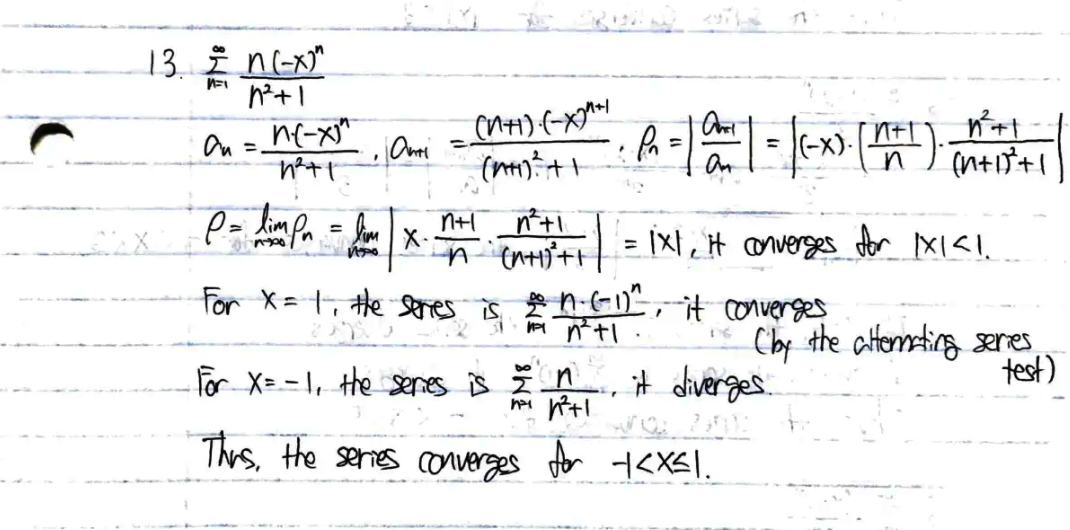 13. $\sum_{n=1}^{\infty} \frac{n(-x)^n}{n^2+1}$
$a_n = \frac{n \cdot (-x)^n}{n^2+1}$, $a_{n+1} = \frac{(n+1) \cdot (-x)^{n+1}}{(n+1)^2+1}$. $\rho_n = \left| \frac{a_{n+1}}{a_n} \right| = \left| (-x) \cdot \left( \frac{n+1}{n} \right) \cdot \frac{n^2+1}{(n+1)^2+1} \right|$
$\rho = \lim_{n \to \infty} \rho_n = \lim_{n \to \infty} \left| x \cdot \frac{n+1}{n} \cdot \frac{n^2+1}{(n+1)^2+1} \right| = |x|$, it converges for $|x| < 1$.
For $x = 1$, the series is $\sum_{n=1}^{\infty} \frac{n \cdot (-1)^n}{n^2+1}$, it converges
(by the alternating series
test)
For $x = -1$, the series is $\sum_{n=1}^{\infty} \frac{n}{n^2+1}$, it diverges.
Thus, the series converges for $-1 < x \le 1$.